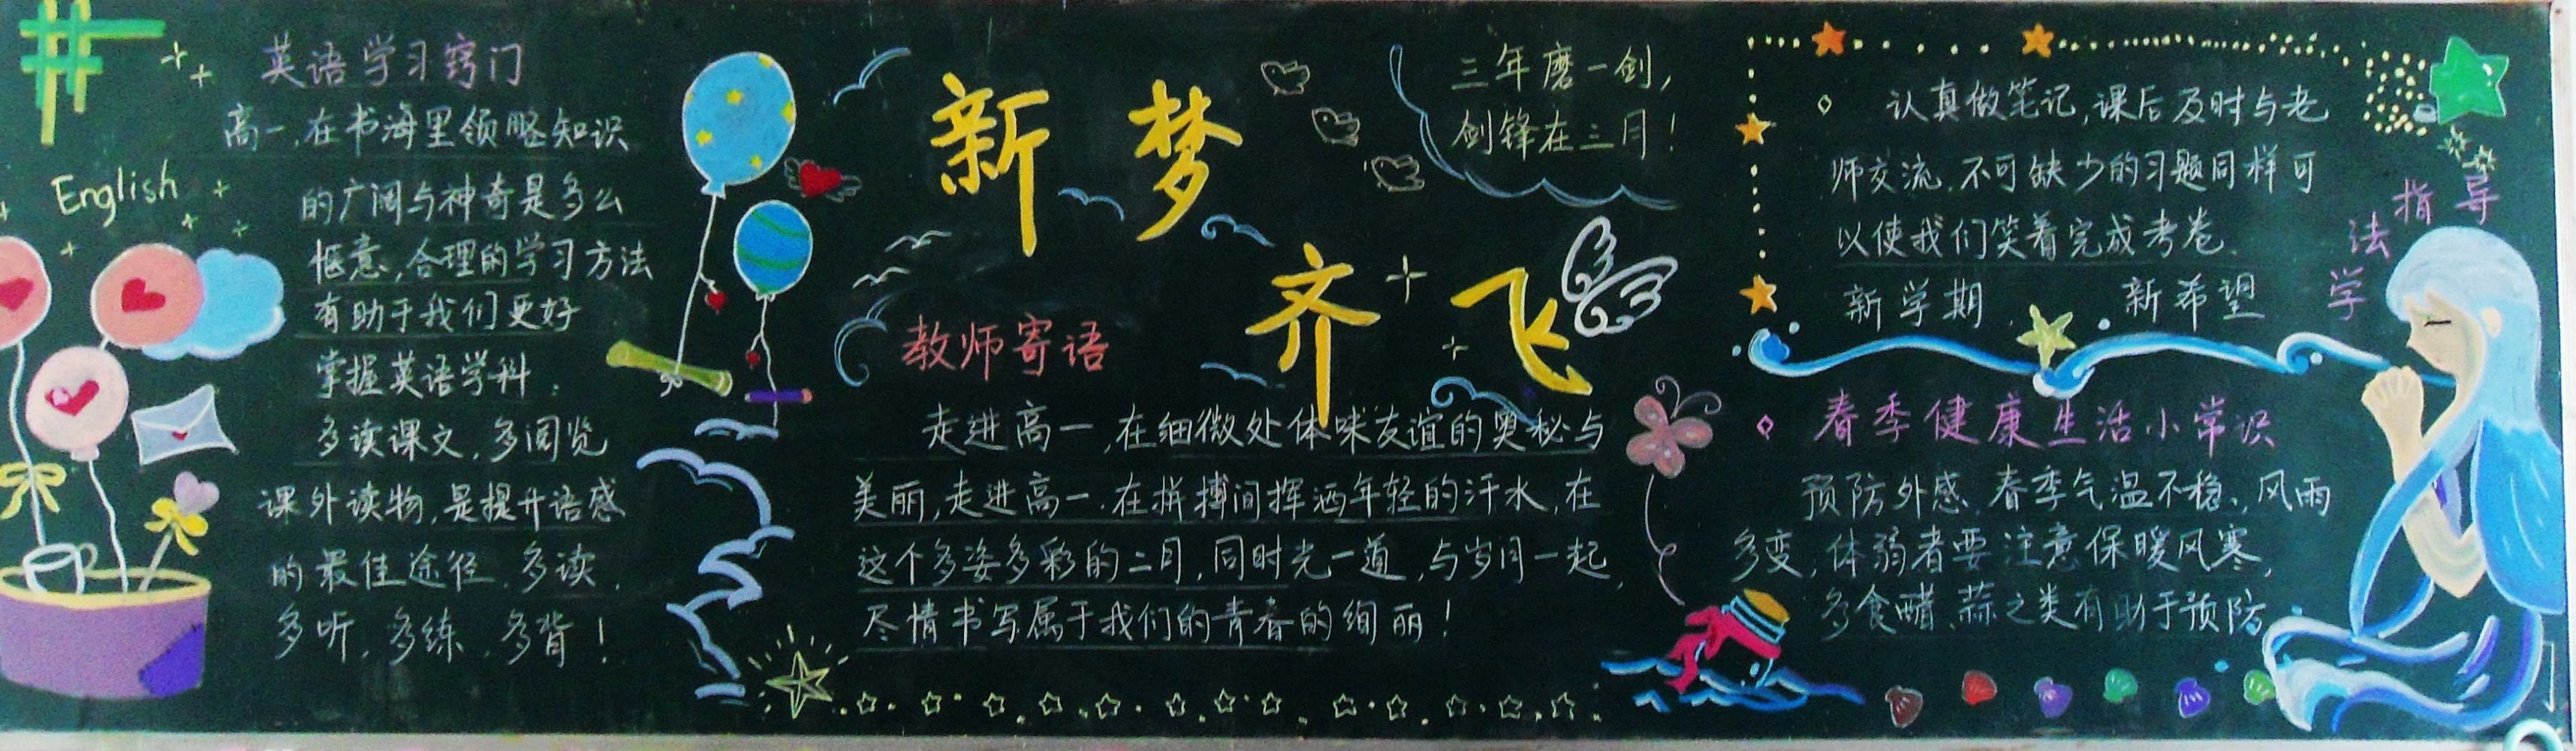 英语学习窍门
高一,在书海里领略知识
的广阔与神奇是多么
惬意,合理的学习方法
有助于我们更好
掌握英语学科:
多读课文,多阅览
课外读物,是提升语感
的最佳途径,多读,
多听,多练,多背!
English
新梦
齐飞
三年磨一剑,
剑锋在三月!
教师寄语
走进高一,在细微处体味友谊的奥秘与
美丽,走进高一,在拼搏间挥洒年轻的汗水,在
这个多姿多彩的二月,同时光一道,与岁月一起,
尽情书写属于我们的青春的绚丽!
学法指导
认真做笔记,课后及时与老
师交流,不可缺少的习题同样可
以使我们笑着完成考卷.
新学期,新希望
春季健康生活小常识
预防外感,春季气温不稳,风雨
多变,体弱者要注意保暖风寒,
多食醋、蒜之类有助于预防